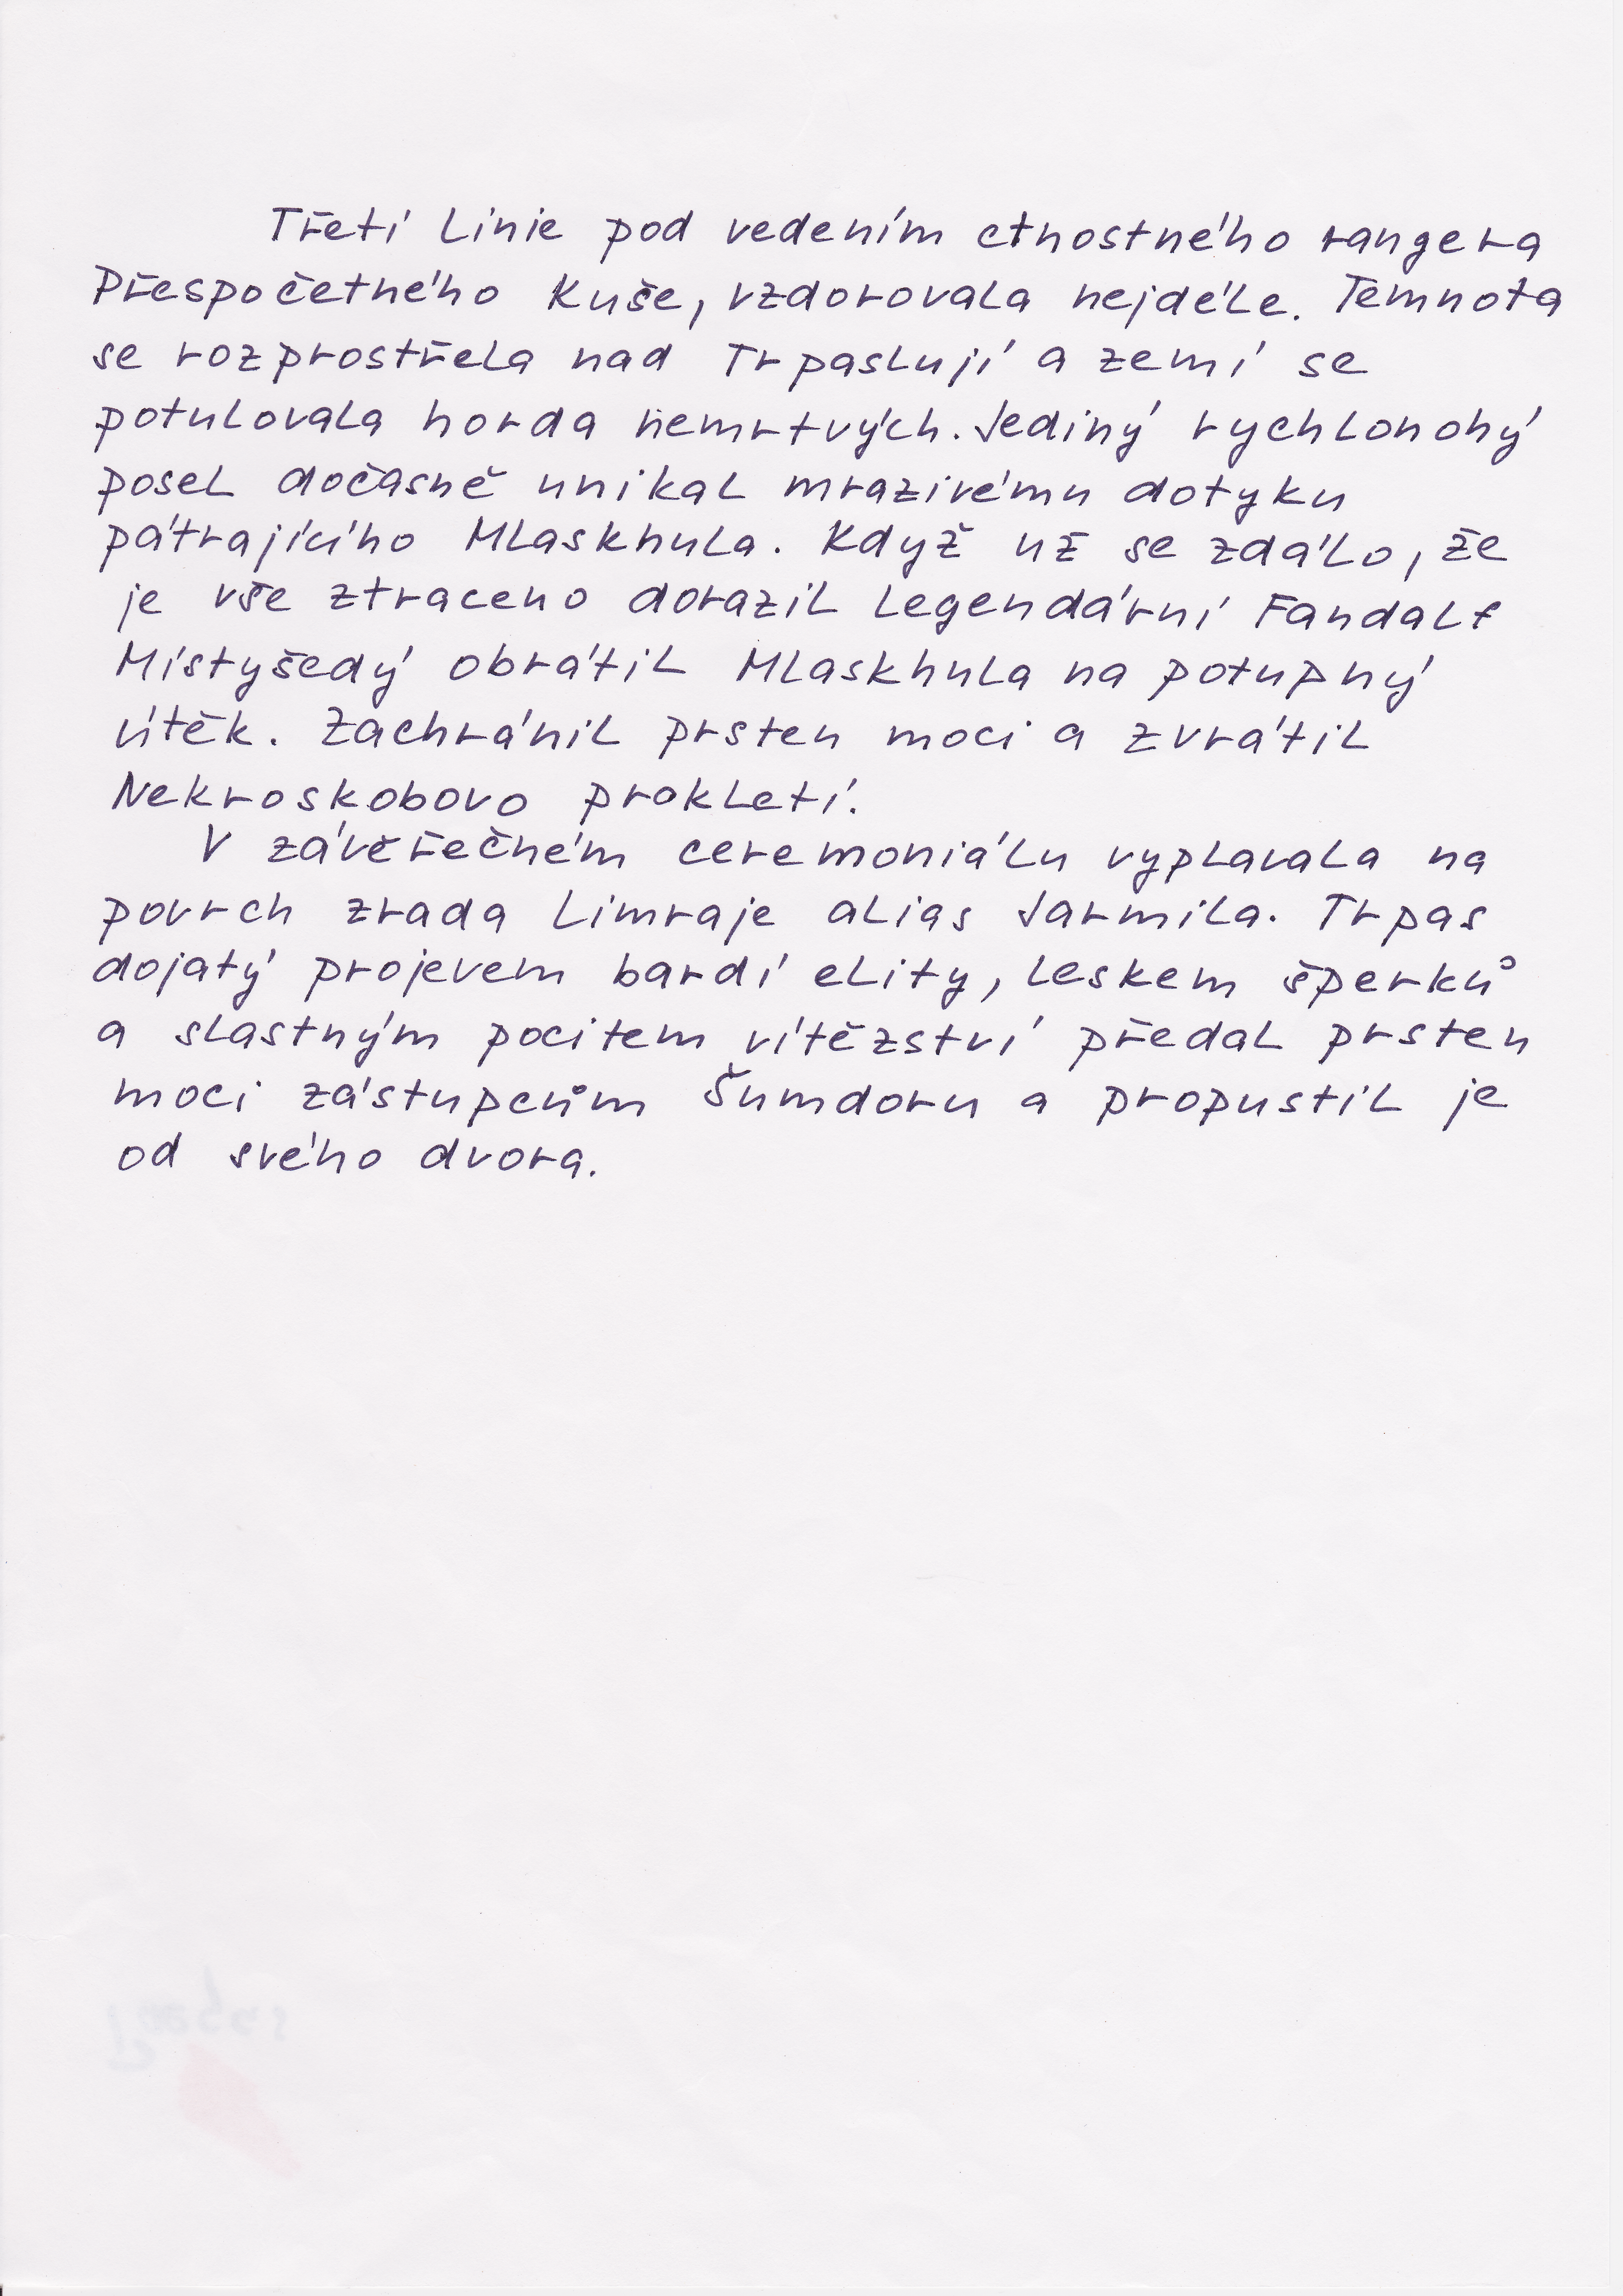 Třetí linie pod vedením ctnostného rangera
Přespočetného Kuše, vzdorovala nejdéle. Temnota
se rozprostřela nad Trpaslují a zemí se
potulovala horda nemrtvých. Jediný rychlonohý
posel dočasně unikal mrazivému dotyku
pátrajícího Mlaskhula. Když už se zdálo, že
je vše ztraceno dorazil legendární Fandalf
Místyšedý obrátil Mlaskhula na potupný
útěk. Zachránil prsten moci a zvrátil
Nekroskobovo prokletí.
V závěřečném ceremoniálu vyplavala na
povrch zrada Limraje alias Jarmila. Trpas
dojatý projevem bardí elity, leskem šperků
a slastným pocitem vítězství předal prsten
moci zástupcům Šumdoru a propustil je
od svého dvora.